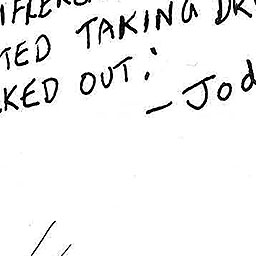 IFFERE
TED TAKING DR
KED OUT.
— Jod